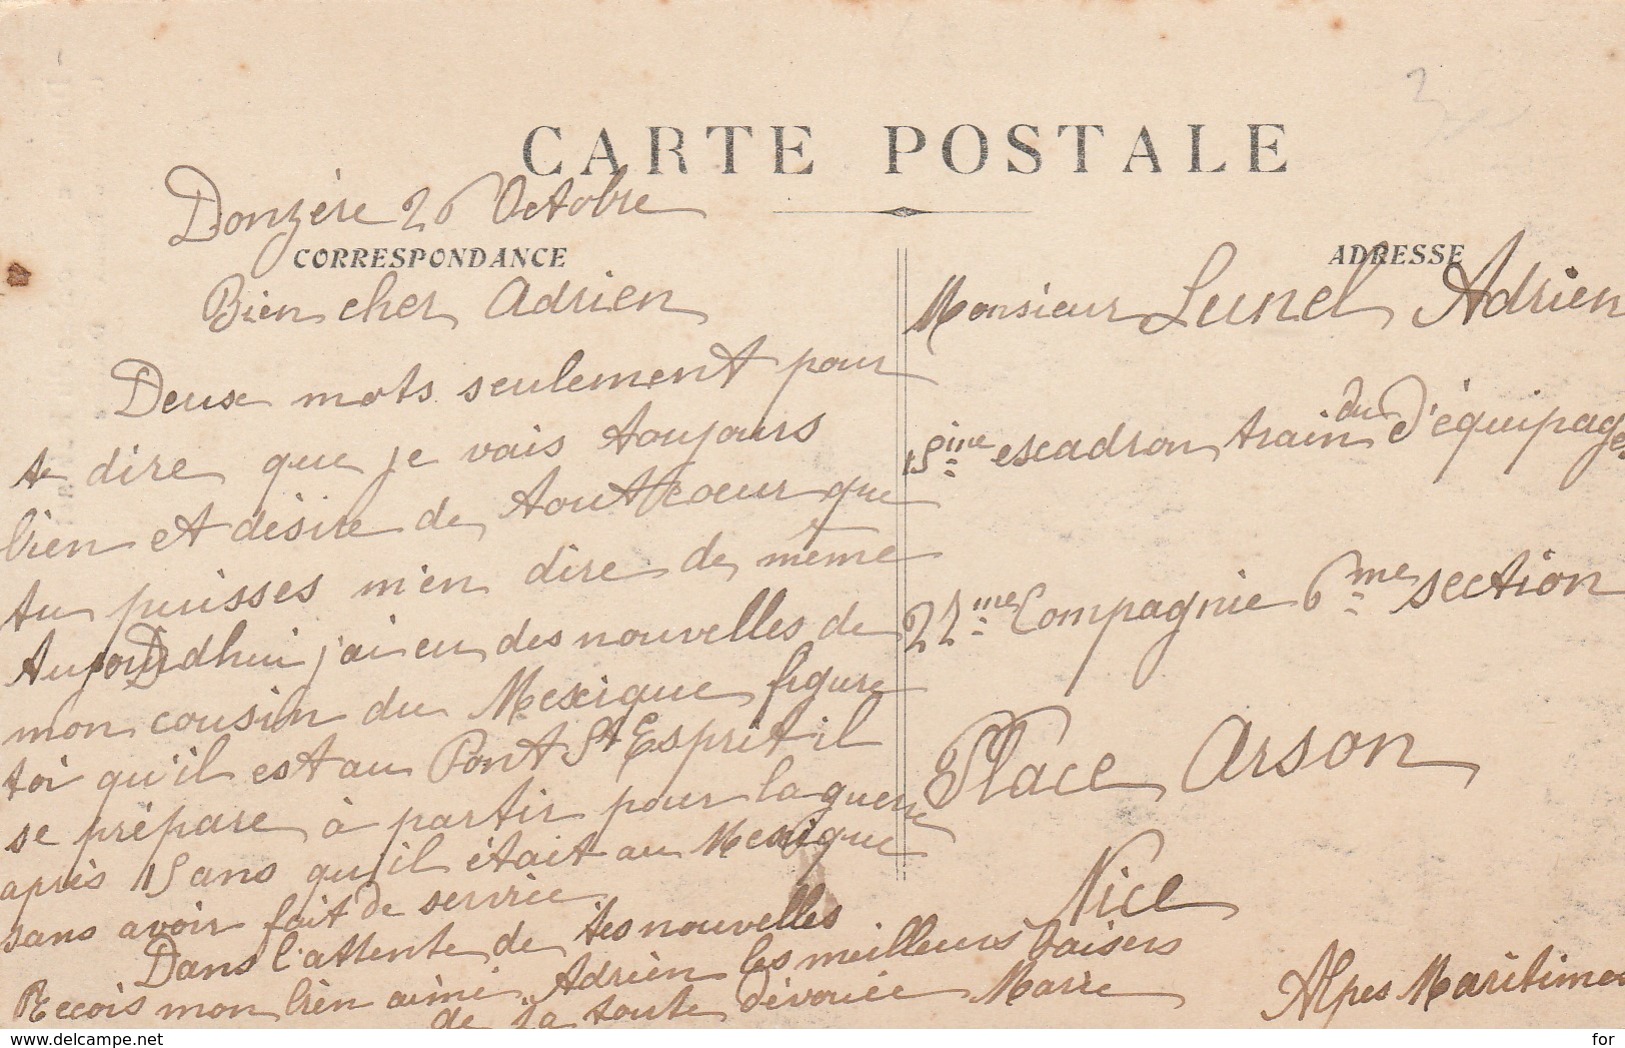 CARTE POSTALE
Donzère 26 Octobre
CORRESPONDANCE
Bien cher Adrien
Deux mots seulement pour
te dire que je vais toujours
bien et désire de tout coeur que
tu puisses m'en dire de même
Aujourdhui j'ai eu des nouvelles de
mon cousin du Mexique figure
toi qu'il est au Pont St Esprit il
se prépare à partir pour la guerre
après 15 ans qu'il était au Mexique
sans avoir fait de service
Dans l'attente de tes nouvelles
Reçois mon bien aimé Adrien les meilleurs baisers
de ta toute dévouée Marie
ADRESSE
Monsieur Lunel Adrien
15ième escadron train du d'équipages
22me Compagnie 6me section
Place Arson
Nice
Alpes Maritimes
www.delcampe.net
for